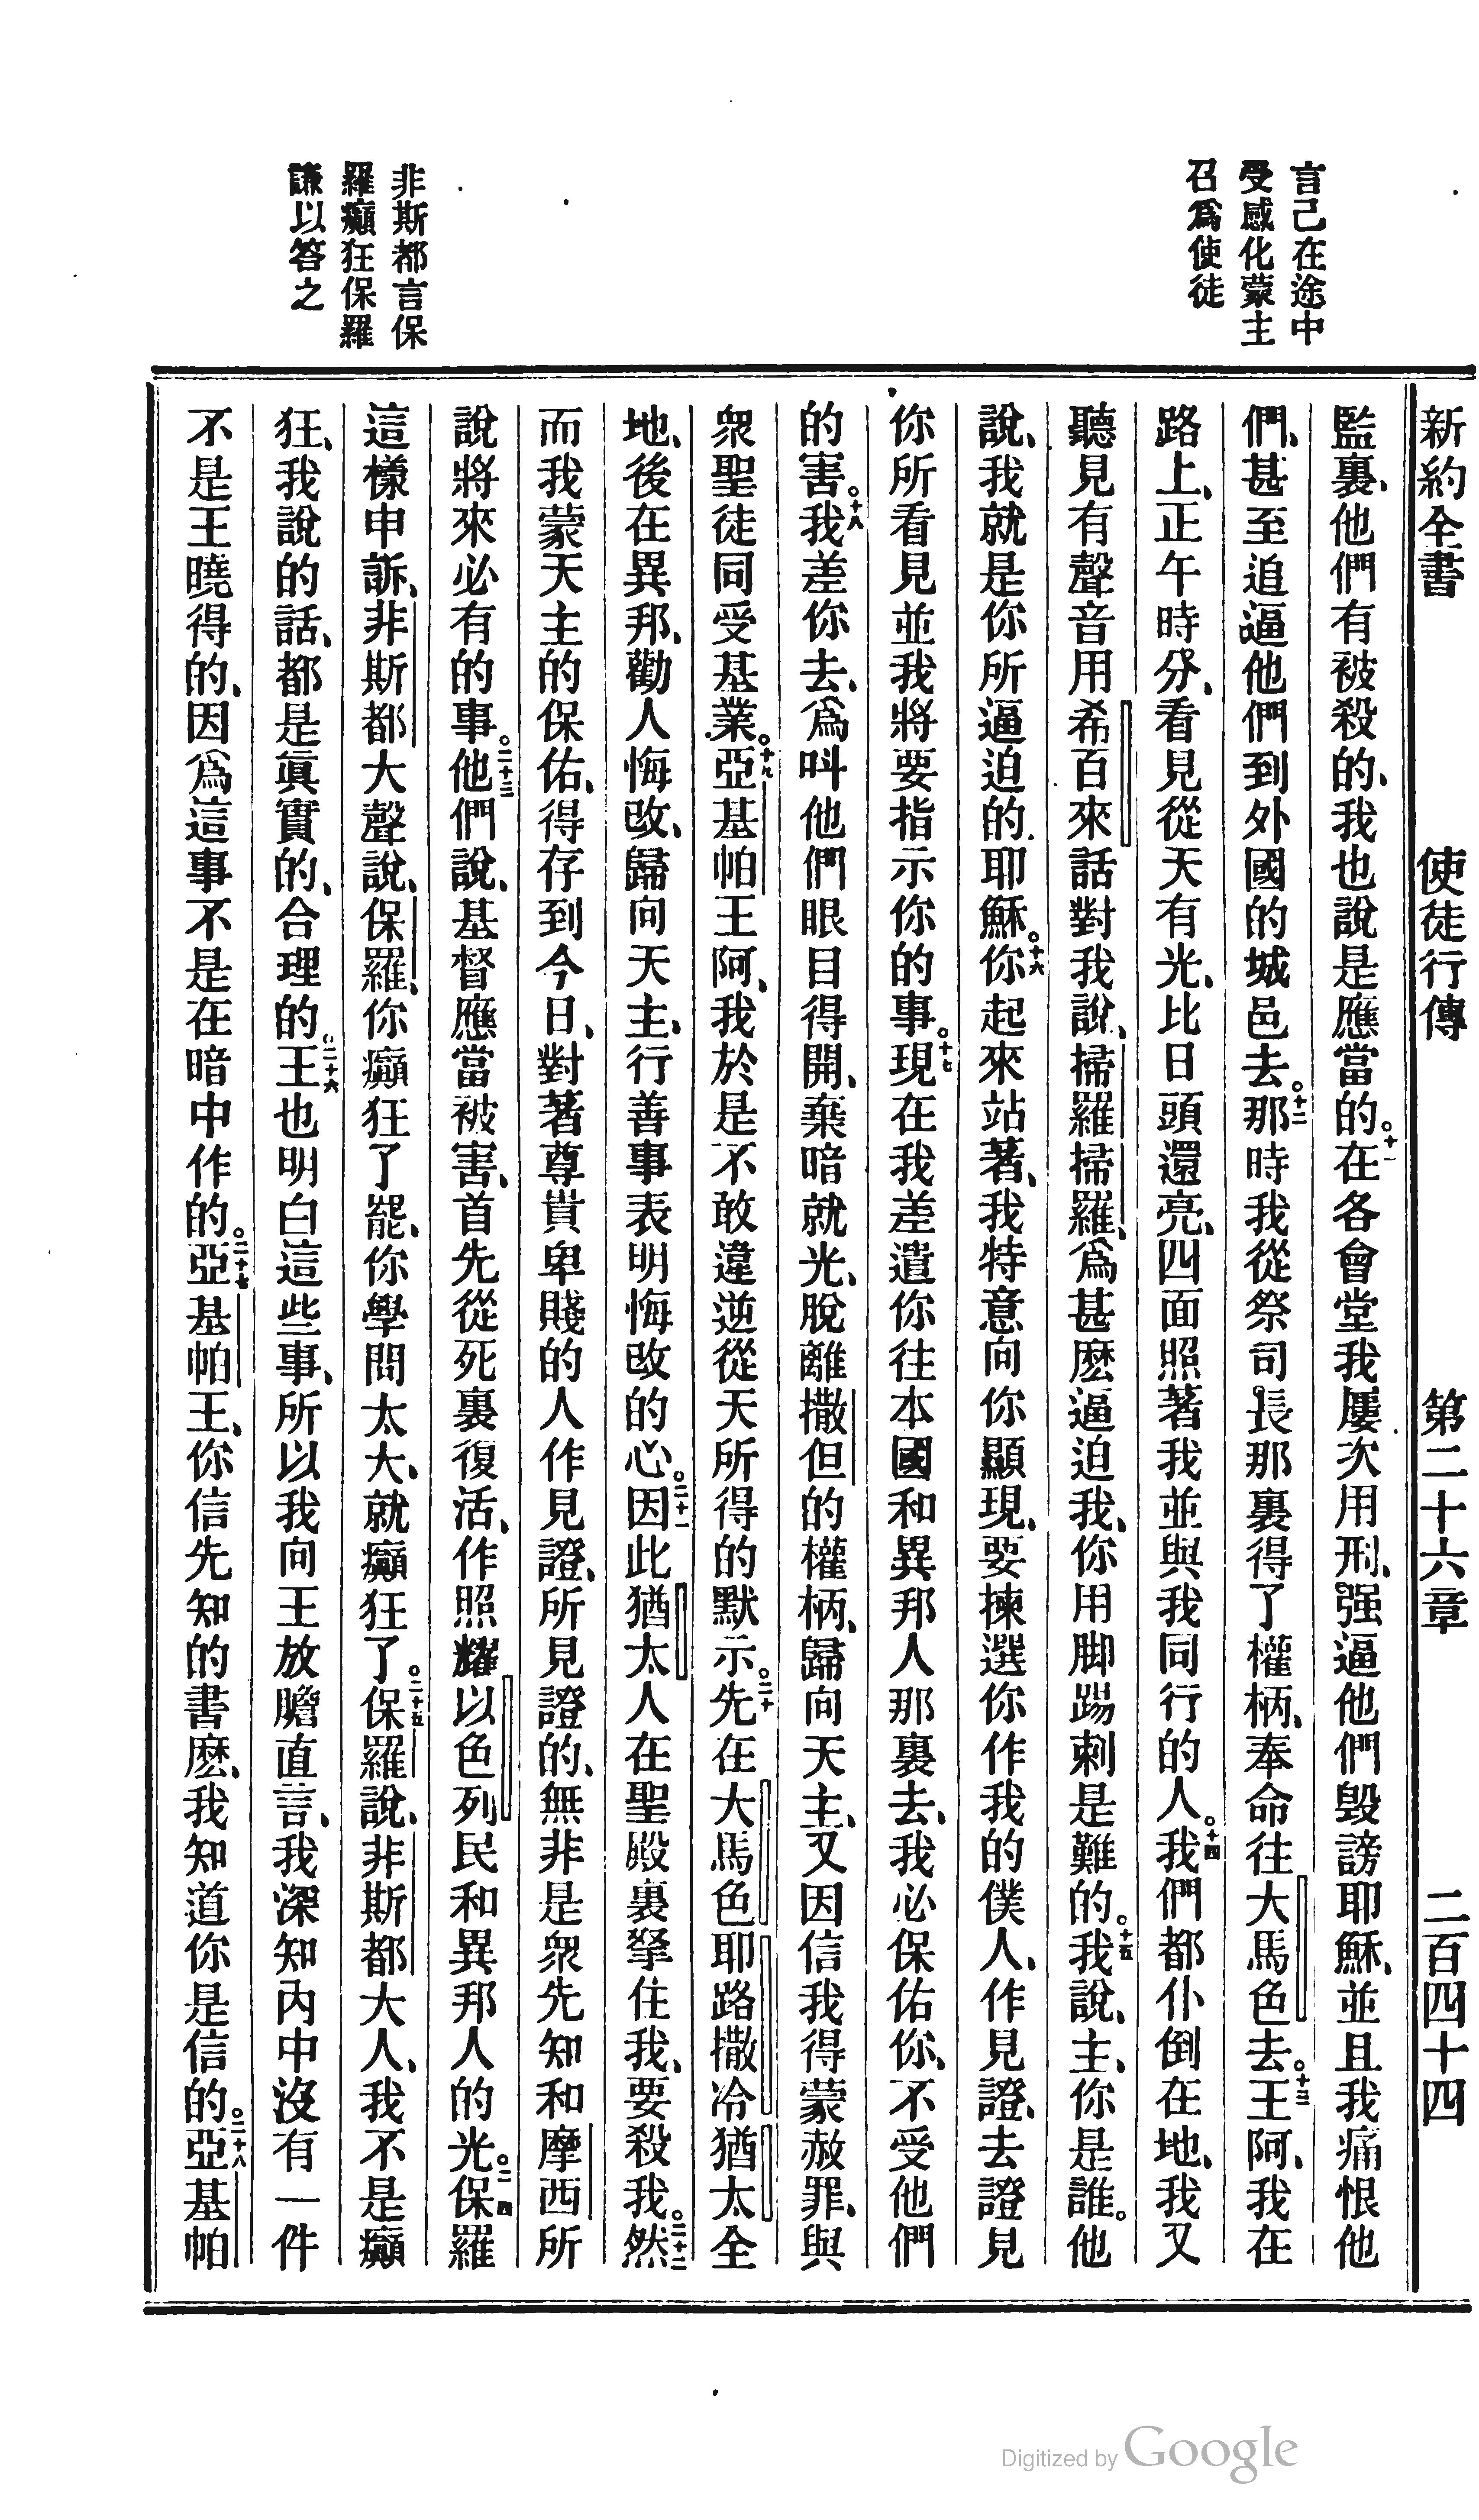 新約全書　使徒行傳　第二十六章　二百四十四
言己在途中
受感化蒙主
召爲使徒
非斯都言保
羅癲狂保羅
謙以答之
監裏、他們有被殺的、我也說是應當的。十一在各會堂我屢次用刑、强逼他們毀謗耶穌、並且我痛恨他
們、甚至追逼他們到外國的城邑去。十二那時我從祭司長那裏得了權柄、奉命往大馬色去。十三王阿、我在
路上、正午時分、看見從天有光、比日頭還亮、四面照著我並與我同行的人。十四我們都仆倒在地、我又
聽見有聲音用希百來話對我說、掃羅掃羅、爲甚麽逼迫我、你用脚踢刺是難的。十五我說、主、你是誰。他
說、我就是你所逼迫的耶穌。十六你起來站著、我特意向你顯現、要揀選你作我的僕人、作見證、去證見
你所看見並我將要指示你的事。十七現在我差遣你往本國和異邦人那裏去、我必保佑你、不受他們
的害。十八我差你去、爲呌他們眼目得開、棄暗就光、脫離撒但的權柄、歸向天主、又因信我得蒙赦罪、與
衆聖徒同受基業。十九亞基帕王阿、我於是不敢違逆從天所得的默示。二十先在大馬色耶路撒冷猶太全
地、後在異邦、勸人悔改、歸向天主、行善事表明悔改的心。二十一因此猶太人在聖殿裏拏住我、要殺我。二十二然
而我蒙天主的保佑、得存到今日、對著尊貴卑賤的人作見證、所見證的、無非是衆先知和摩西所
說將來必有的事。二十三他們說、基督應當被害、首先從死裏復活、作照耀以色列民和異邦人的光。二十四保羅
這樣申訴、非斯都大聲說、保羅、你癲狂了罷、你學問太大、就癲狂了。二十五保羅說、非斯都大人、我不是癲
狂、我說的話、都是眞實的、合理的。二十六王也明白這些事、所以我向王放膽直言、我深知內中沒有一件
不是王曉得的、因爲這事不是在暗中作的。二十七亞基帕王、你信先知的書麽、我知道你是信的。二十八亞基帕
Digitized by Google